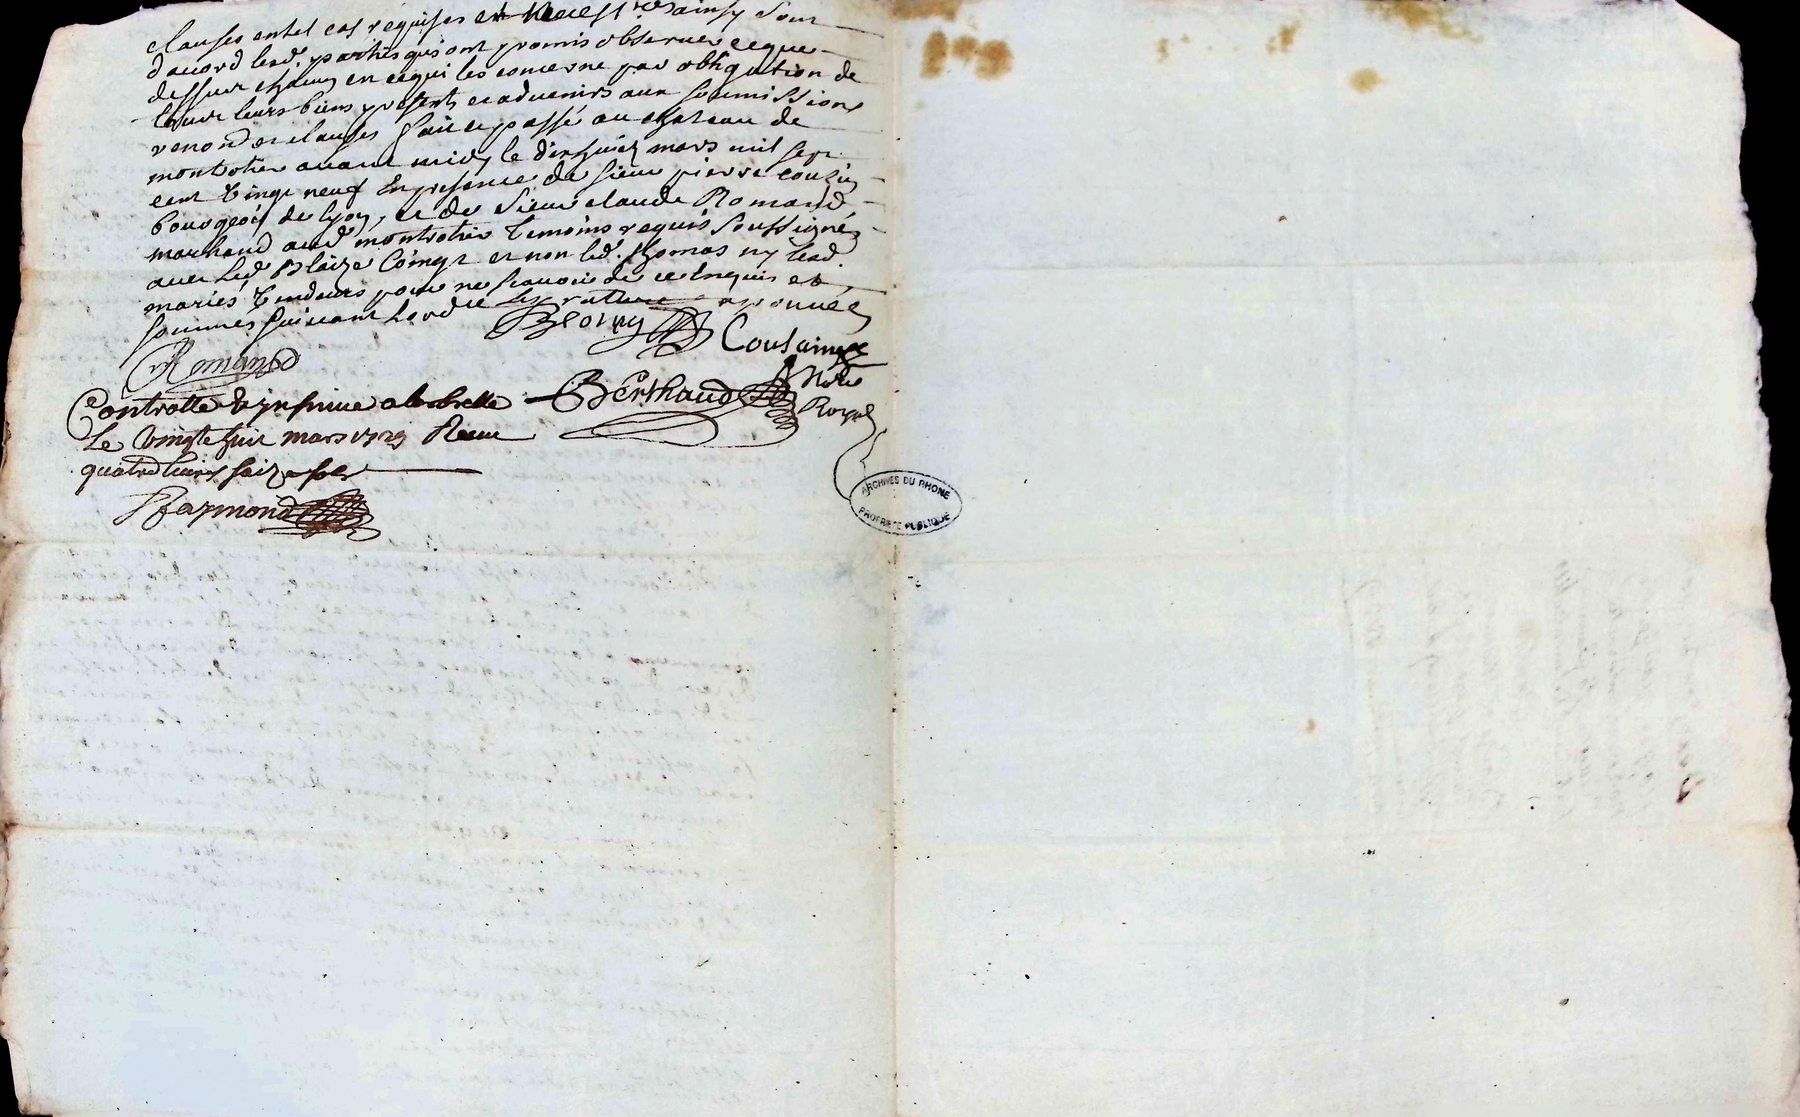 clauses entel cas requises et necess.res ainsy Sont
dacord lesd. parties qui ont promis observer ceque
dessur chacun en cequi les concerne par obligation de
tous leurs biens presents et advenirs aux soumissions
renon.d et clauses fait et passé au chateau de
montrotier avant midy le dixhuict mars mil sept
cent vingt neuf En presence de sieur pierre couzin
bourgeois de lyon, et de Sieur claude Romand
marchand aud. montrotier temoins requis soussignés
avec led. Blaize et non led. thomas ny lesd.
mariés vendeurs pour ne scavoir de ce enquis et
sommés suivant lordce
Cousain
Romand
Controllé & insinué Berthaud Notre
Le vingt huit mars 1729 Receu Royal
quatre livres saize sols
Raymond
ARCHIVES DU RHONE
PROPRIETE PUBLIQUE